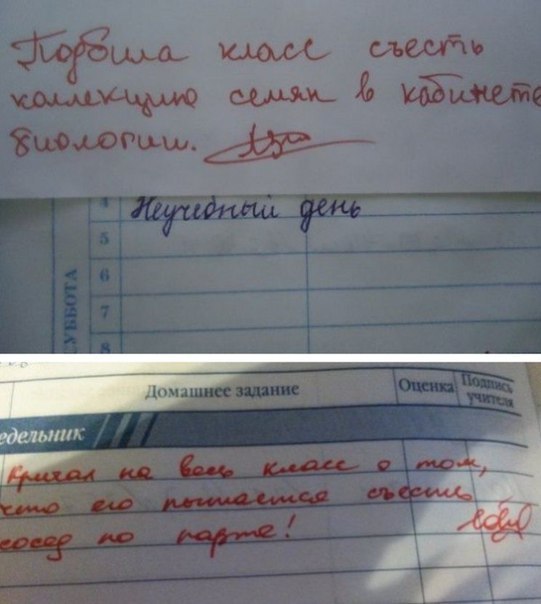 Подбила класс съесть
коллекцию семян в кабинете
биологии.
4 Неучебный день
5
6
7
8
СУББОТА
Домашнее задание Оценка Подпись учителя
едельник
Кричал на весь класс о том,
что его пытается съесть
сосед по парте!